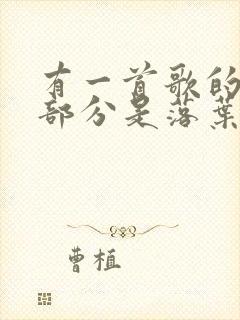 有一首歌的
部分是落葉
曹植